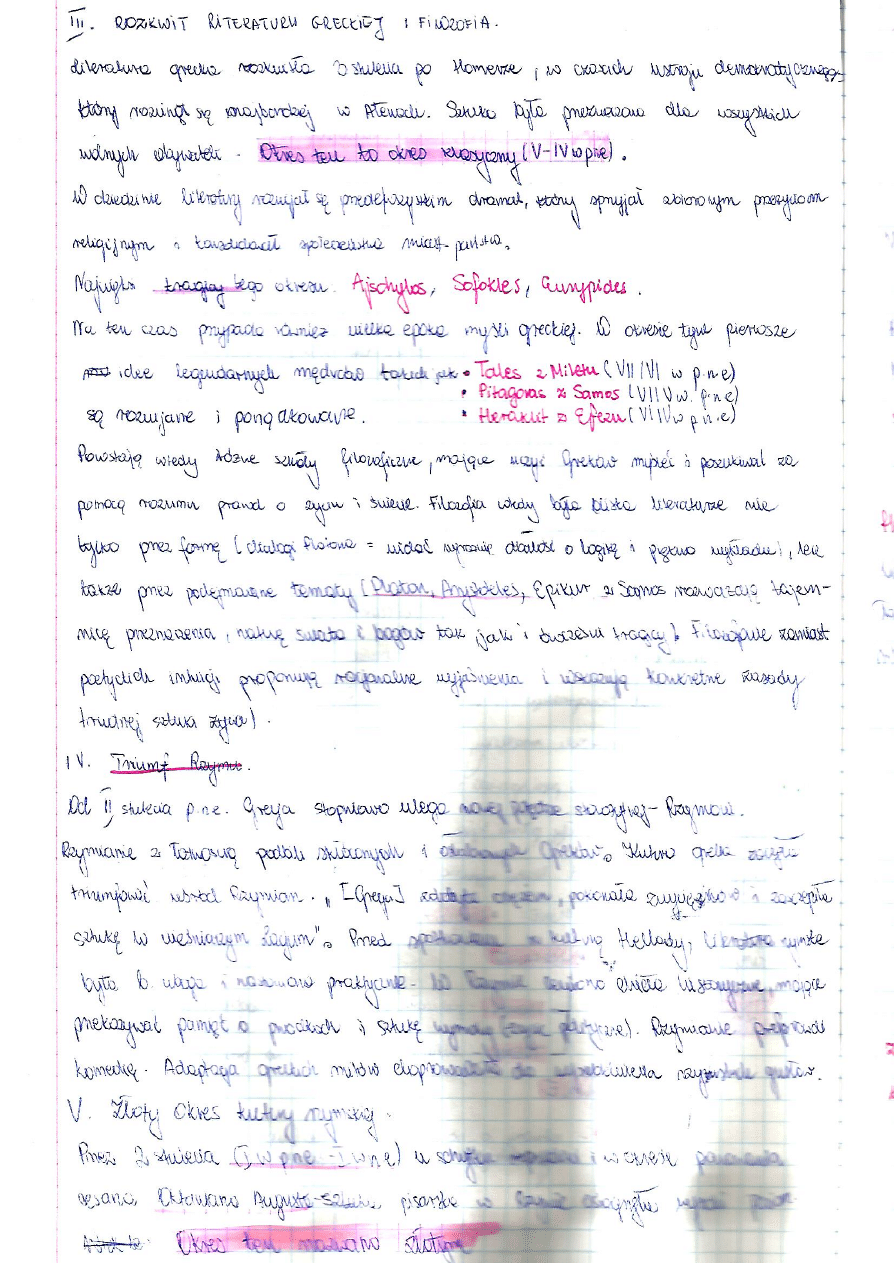 III. ROZKWIT LITERATURY GRECKIEJ I FILOZOFIA.
Literatura grecka rozkwitła 3 stulecia po Homerze, w czasach ustroju demokratycznego,
który rozwinął się najbardziej w Atenach. Sztuka była przeznaczona dla wszystkich
wolnych obywateli. Okres ten to okres klasyczny (V-IV w p.ne).
W dziedzinie literatury rozwijał się przede wszystkim dramat, który sprzyjał zbiorowym przeżyciom
religijnym i konsolidacji społeczeństwa miast-państw.
Najwięksi tragicy tego okresu: Ajschylos, Sofokles, Eurypides.
Na ten czas przypada również wielka epoka myśli greckiej. W okresie tym pierwsze
idee legendarnych mędrców takich jak • Tales z Miletu (VII/VI w p.n.e)
• Pitagoras z Samos (VI/V w. p.n.e)
• Heraklit z Efezu (VI/V w p.n.e)
są rozwijane i porządkowane.
Powstają wtedy różne szkoły filozoficzne, mające uczyć Greków myśleć i poszukiwać za
pomocą rozumu prawd o życiu i świecie. Filozofia wtedy była bliska literaturze nie
tylko przez formę (dialogi Platona = widać wyraźnie dbałość o logikę i piękno wykładu), lecz
także przez podejmowane tematy (Platon, Arystoteles, Epikur z Samos rozważają tajem-
nicę przeznaczenia, naturę świata i bogów tak jak i twórcy tragicy). Filozofowie zamiast
poetyckich intuicji proponują racjonalne wyjaśnienia i wskazują konkretne zasady
trudnej sztuki życia).
IV. Triumf Rzymu.
Od II stulecia p.n.e. Grecja stopniowo ulega nowej potędze starożytnej - Rzymowi.
Rzymianie z łatwością podbili skłóconych i osłabionych Greków. Kultura grecka zaczęła
triumfować wśród Rzymian. „[Grecja] zdobyta orężem, pokonała zwycięzców i zaszczepiła
sztukę w wieśniaczym Lacjum". Przed spotkaniem z kulturą Hellady, literatura rzymska
była b. uboga i nastawiona praktycznie. W Rzymie ceniono dzieła historyczne, mające
przekazywać pamięć o przodkach i sztukę wymowy. Rzymianie
komedię. Adaptacja greckich mitów doprowadziła do gustów.
V. Złoty Okres kultury rzymskiej.
Przez 2 stulecia (I w p.n.e - I w n.e) u schyłku republiki i w okresie panowania
cesarza Oktawiana Augusta - sztuka pisarska w Rzymie osiągnęła
Okres ten nazwano złotym